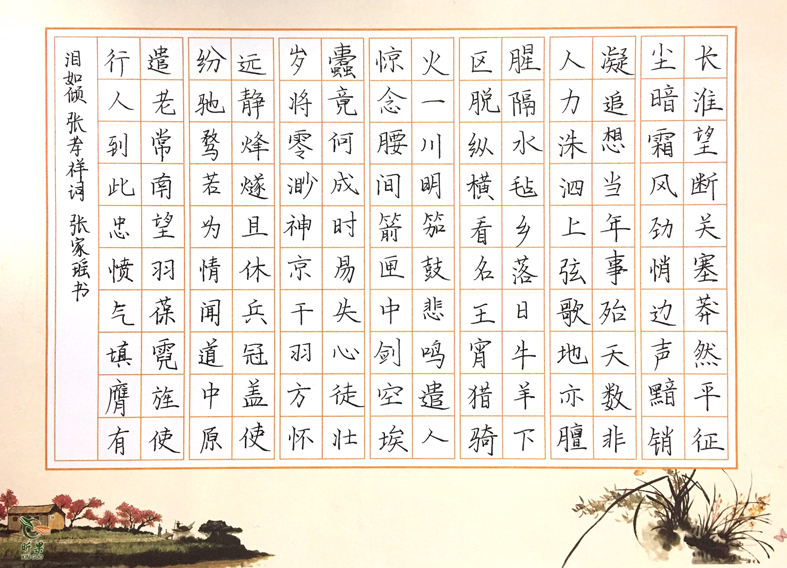 长淮望断关塞莽然平征
尘暗霜风劲悄边声黯销
凝追想当年事殆天数非
人力洙泗上弦歌地亦膻
腥隔水毡乡落日牛羊下
区脱纵横看名王宵猎骑
火一川明笳鼓悲鸣遣人
惊念腰间箭匣中剑空埃
蠹竟何成时易失心徒壮
岁将零渺神京干羽方怀
远静烽燧且休兵冠盖使
纷驰骛若为情闻道中原
遣老常南望羽葆霓旌使
行人到此忠愤气填膺有
泪如倾 张孝祥词 张家瑶书